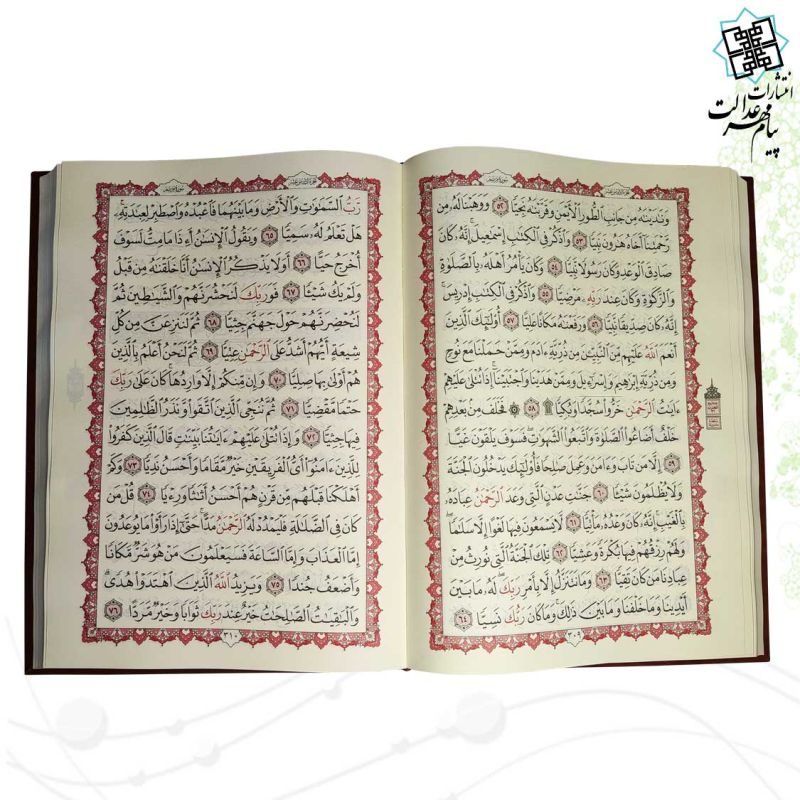 انتشارات
پیام مهر عدالت
وَنَٰدَيْنَٰهُ مِن جَانِبِ ٱلطُّورِ ٱلْأَيْمَنِ وَقَرَّبْنَٰهُ نَجِيًّا ٥٢ وَوَهَبْنَا لَهُۥ مِن
رَّحْمَتِنَآ أَخَاهُ هَٰرُونَ نَبِيًّا ٥٣ وَٱذْكُرْ فِى ٱلْكِتَٰبِ إِسْمَٰعِيلَ إِنَّهُۥ كَانَ
صَادِقَ ٱلْوَعْدِ وَكَانَ رَسُولًا نَّبِيًّا ٥٤ وَكَانَ يَأْمُرُ أَهْلَهُۥ بِٱلصَّلَوٰةِ
وَٱلزَّكَوٰةِ وَكَانَ عِندَ رَبِّهِۦ مَرْضِيًّا ٥٥ وَٱذْكُرْ فِى ٱلْكِتَٰبِ إِدْرِيسَ
إِنَّهُۥ كَانَ صِدِّيقًا نَّبِيًّا ٥٦ وَرَفَعْنَٰهُ مَكَانًا عَلِيًّا ٥٧ أُو۟لَٰٓئِكَ ٱلَّذِينَ
أَنْعَمَ ٱللَّهُ عَلَيْهِم مِّنَ ٱلنَّبِيِّـۧنَ مِن ذُرِّيَّةِ ءَادَمَ وَمِمَّنْ حَمَلْنَا مَعَ نُوحٍ
وَمِن ذُرِّيَّةِ إِبْرَٰهِيمَ وَإِسْرَٰٓءِيلَ وَمِمَّنْ هَدَيْنَا وَٱجْتَبَيْنَآ إِذَا تُتْلَىٰ عَلَيْهِمْ
ءَايَٰتُ ٱلرَّحْمَٰنِ خَرُّوا۟ سُجَّدًا وَبُكِيًّا ۩ ٥٨ ۞ فَخَلَفَ مِنۢ بَعْدِهِمْ
خَلْفٌ أَضَاعُوا۟ ٱلصَّلَوٰةَ وَٱتَّبَعُوا۟ ٱلشَّهَوَٰتِ فَسَوْفَ يَلْقَوْنَ غَيًّا
٥٩ إِلَّا مَن تَابَ وَءَامَنَ وَعَمِلَ صَٰلِحًا فَأُو۟لَٰٓئِكَ يَدْخُلُونَ ٱلْجَنَّةَ
وَلَا يُظْلَمُونَ شَيْـًٔا ٦٠ جَنَّٰتِ عَدْنٍ ٱلَّتِى وَعَدَ ٱلرَّحْمَٰنُ عِبَادَهُۥ
بِٱلْغَيْبِ إِنَّهُۥ كَانَ وَعْدُهُۥ مَأْتِيًّا ٦١ لَّا يَسْمَعُونَ فِيهَا لَغْوًا إِلَّا سَلَٰمًا
وَلَهُمْ رِزْقُهُمْ فِيهَا بُكْرَةً وَعَشِيًّا ٦٢ تِلْكَ ٱلْجَنَّةُ ٱلَّتِى نُورِثُ مِنْ
عِبَادِنَا مَن كَانَ تَقِيًّا ٦٣ وَمَا نَتَنَزَّلُ إِلَّا بِأَمْرِ رَبِّكَ لَهُۥ مَا بَيْنَ
أَيْدِينَا وَمَا خَلْفَنَا وَمَا بَيْنَ ذَٰلِكَ وَمَا كَانَ رَبُّكَ نَسِيًّا ٦٤
٣٠٩
رَّبُّ ٱلسَّمَٰوَٰتِ وَٱلْأَرْضِ وَمَا بَيْنَهُمَا فَٱعْبُدْهُ وَٱصْطَبِرْ لِعِبَٰدَتِهِۦ
هَلْ تَعْلَمُ لَهُۥ سَمِيًّا ٦٥ وَيَقُولُ ٱلْإِنسَٰنُ أَءِذَا مَا مِتُّ لَسَوْفَ
أُخْرَجُ حَيًّا ٦٦ أَوَلَا يَذْكُرُ ٱلْإِنسَٰنُ أَنَّا خَلَقْنَٰهُ مِن قَبْلُ
وَلَمْ يَكُ شَيْـًٔا ٦٧ فَوَرَبِّكَ لَنَحْشُرَنَّهُمْ وَٱلشَّيَٰطِينَ ثُمَّ
لَنُحْضِرَنَّهُمْ حَوْلَ جَهَنَّمَ جِثِيًّا ٦٨ ثُمَّ لَنَنزِعَنَّ مِن كُلِّ
شِيعَةٍ أَيُّهُمْ أَشَدُّ عَلَى ٱلرَّحْمَٰنِ عِتِيًّا ٦٩ ثُمَّ لَنَحْنُ أَعْلَمُ بِٱلَّذِينَ
هُمْ أَوْلَىٰ بِهَا صِلِيًّا ٧٠ وَإِن مِّنكُمْ إِلَّا وَارِدُهَا كَانَ عَلَىٰ رَبِّكَ
حَتْمًا مَّقْضِيًّا ٧١ ثُمَّ نُنَجِّى ٱلَّذِينَ ٱتَّقَوا۟ وَّنَذَرُ ٱلظَّٰلِمِينَ
فِيهَا جِثِيًّا ٧٢ وَإِذَا تُتْلَىٰ عَلَيْهِمْ ءَايَٰتُنَا بَيِّنَٰتٍ قَالَ ٱلَّذِينَ كَفَرُوا۟
لِلَّذِينَ ءَامَنُوٓا۟ أَىُّ ٱلْفَرِيقَيْنِ خَيْرٌ مَّقَامًا وَأَحْسَنُ نَدِيًّا ٧٣ وَكَمْ
أَهْلَكْنَا قَبْلَهُم مِّن قَرْنٍ هُمْ أَحْسَنُ أَثَٰثًا وَرِءْيًا ٧٤ قُلْ مَن
كَانَ فِى ٱلضَّلَٰلَةِ فَلْيَمْدُدْ لَهُ ٱلرَّحْمَٰنُ مَدًّا حَتَّىٰٓ إِذَا رَأَوْا۟ مَا يُوعَدُونَ
إِمَّا ٱلْعَذَابَ وَإِمَّا ٱلسَّاعَةَ فَسَيَعْلَمُونَ مَنْ هُوَ شَرٌّ مَّكَانًا
وَأَضْعَفُ جُندًا ٧٥ وَيَزِيدُ ٱللَّهُ ٱلَّذِينَ ٱهْتَدَوْا۟ هُدًى
وَٱلْبَٰقِيَٰتُ ٱلصَّٰلِحَٰتُ خَيْرٌ عِندَ رَبِّكَ ثَوَابًا وَخَيْرٌ مَّرَدًّا ٧٦
٣١٠